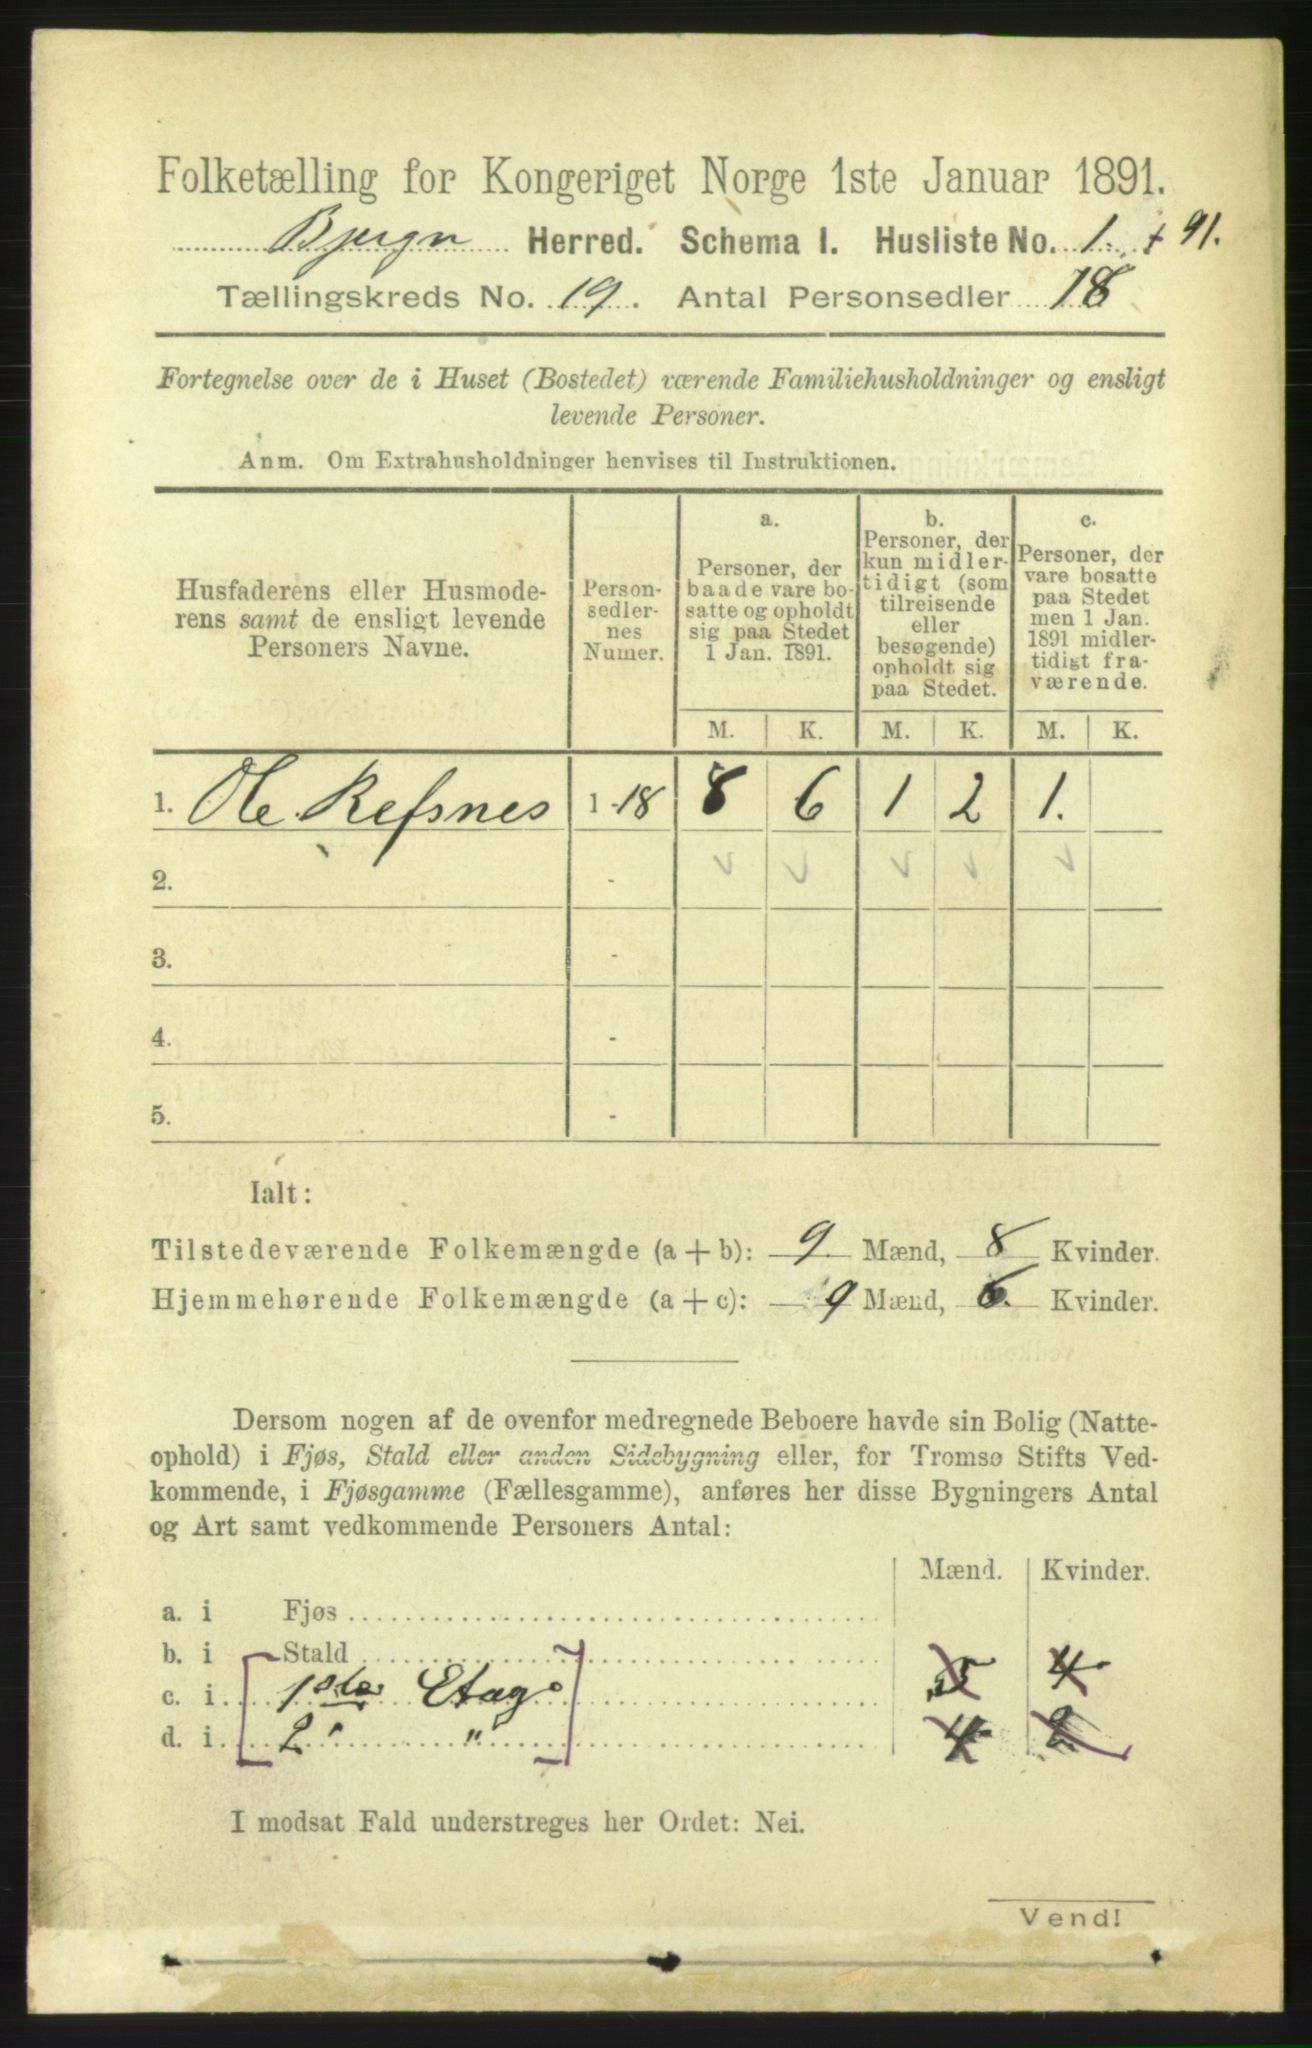 Folketælling for Kongeriget Norge 1ste Januar 1891.
Bjugn Herred. Schema I. Husliste No. 1. + 91.
Tællingskreds No. 19. Antal Personsedler 18
Fortegnelse over de i Huset (Bostedet) værende Familiehusholdninger og ensligt
levende Personer.
Anm. Om Extrahusholdninger henvises til Instruktionen.
Husfaderens eller Husmode-
rens samt de ensligt levende
Personers Navne.
Person-
sedler-
nes
Numer.
a.
Personer, der
baade vare bo-
satte og opholdt
sig paa Stedet
1 Jan. 1891.
b.
Personer, der
kun midler-
tidigt (som
tilreisende
eller
besøgende)
opholdt sig
paa Stedet.
c.
Personer, der
vare bosatte
paa Stedet
men 1 Jan.
1891 midler-
tidigt fra-
værende.
M. K. M. K. M. K.
1. Ole Refsnes 1-18 8 6 1 2 1.
2. -
3. -
4. -
5. -
Ialt:
Tilstedeværende Folkemængde (a + b): 9. Mænd, 8 Kvinder.
Hjemmehørende Folkemængde (a + c): 9 Mænd, 6. Kvinder.
Dersom nogen af de ovenfor medregnede Beboere havde sin Bolig (Natte-
ophold) i Fjøs, Stald eller anden Sidebygning eller, for Tromsø Stifts Ved-
kommende, i Fjøsgamme (Fællesgamme), anføres her disse Bygningers Antal
og Art samt vedkommende Personers Antal:
Mænd. Kvinder.
a. i Fjøs
b. i Stald
c. i 1ste Etage 5 4
d. i 2 " " 4 2
I modsat Fald understreges her Ordet: Nei.
Vend!